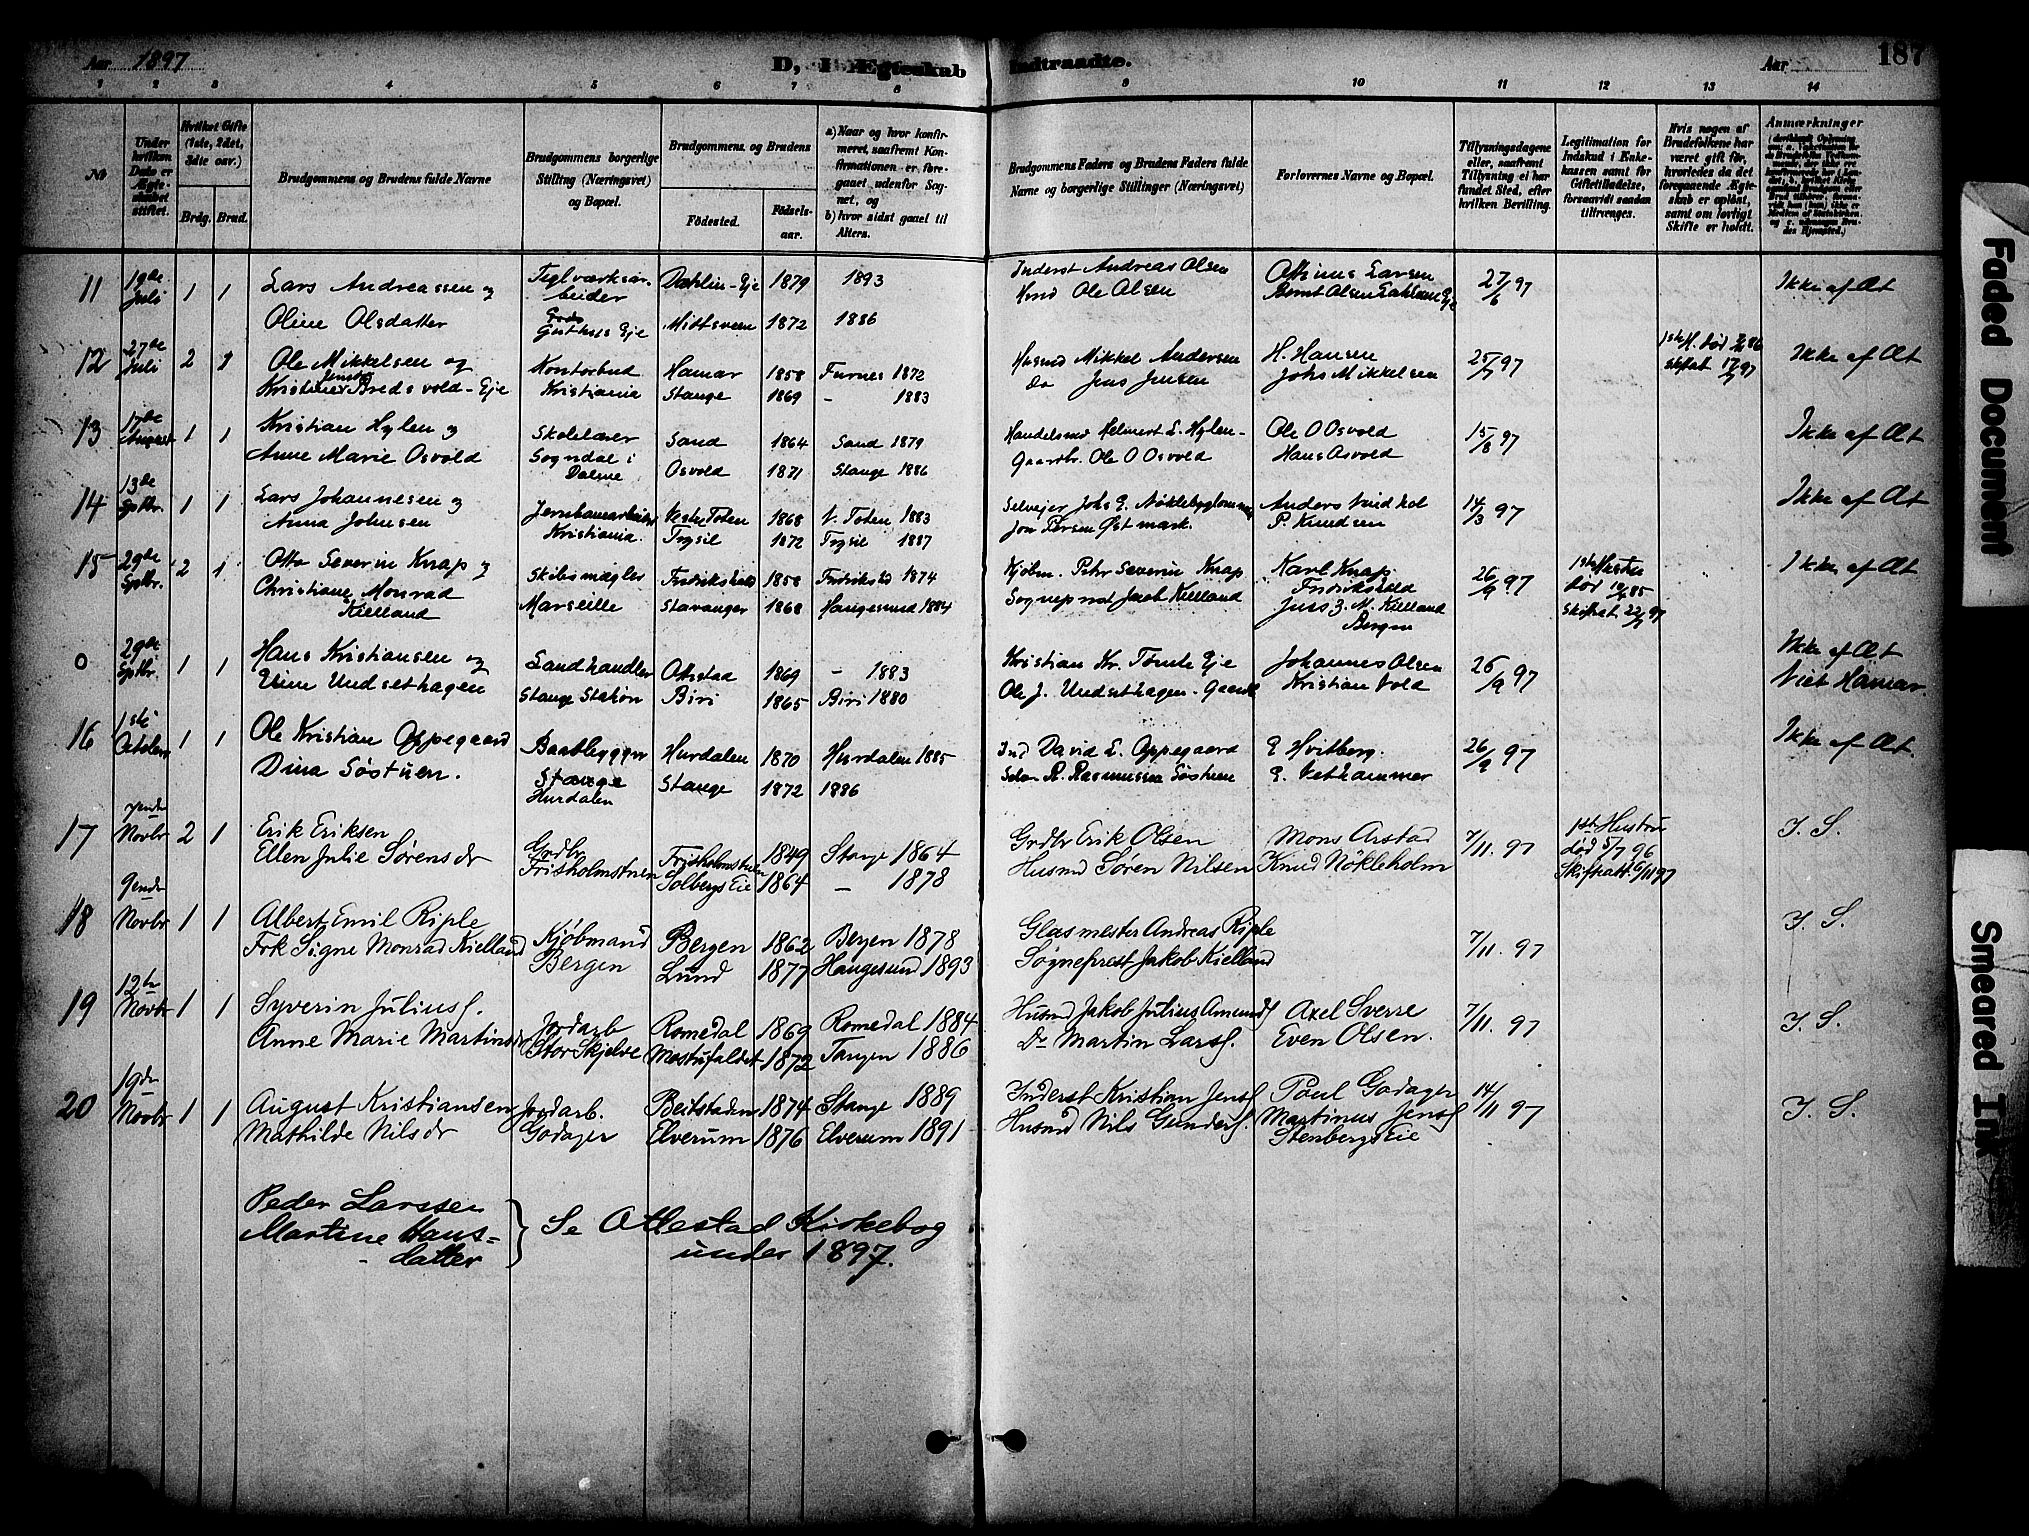 Aar 1897
D, I Ægteskab Indtraadte.
Aar
187
1 2 3 4 5 6 7 8 9 10 11 12 13 14
No
Under hvilken Dato er Ægteskabet stiftet.
Hvilket Gifte (1ste, 2det, 3die osv.)
Brdg. Brud.
Brudgommens og Brudens fulde Navne
Brudgommens borgerlige Stilling (Næringsvei) og Bopæl.
Brudgommens og Brudens
Fødested.
Fødselsaar.
a) Naar og hvor konfirmeret, saafremt Konfirmationen er foregaaet udenfor Sognet, og
b) hvor sidst gaaet til Alters.
Brudgommens Faders og Brudens Faders fulde Navne og borgerlige Stillinger (Næringsvei)
Forlovernes Navne og Bopæl.
Tillysningsdagene eller, saafremt Tillysning ei har fundet Sted, efter hvilken Bevilling.
Legitimation for Indskud i Enkekassen samt for Giftetilladelse, forsaavidt saadan tiltrænges.
Hvis nogen af Brudefolkene har været gift før, hvorledes da det foregaaende Ægteskab er opløst, samt om lovligt Skifte er holdt.
Anmærkninger
11 19de Juli 1 1 Lars Andreassen og Teglværksarbeider Dæhlin-Eje 1879 1893 Inderst Andreas Olsen Ottinus Larsen 27/6 97 Ikke af Æt
Oline Olsdatter Gusthus Eje 1872 1886 Hmd Ole Olsen Bernt Olsen Eje
12 27de Juli 2 1 Ole Mikkelsen og Kontorbud Hamar 1858 Furnes 1872 Husmd Mikkel Andersen H. Hansen 25/7 97 1ste H. død Ikke af Æt
Jensdr Kristiania Stange 1869 – 1883 do Jens Jensen Johs Mikkelsen
13 17de August 1 1 Kristian Hylen og Skolelærer Sand 1864 Sand 1879 Handelsmd Helmert L. Hylen - Ole O Osvold 15/8 97 Ikke af Æt
Anne Marie Osvold Sogndal i Dalene Osvold 1871 Stange 1886 Gaardbr. Ole O Osvold Hans Osvold
14 13de Sptbr. 1 1 Lars Johannesen og Vestre Toten 1868 V. Toten 1883 Selvejer Johs E. Anders 97 Ikke af Æt
Anna Johnsen Kristiania. Trysil 1872 Trysil 1887 Jon Persen Østmark. P. Knudsen
15 29de Sptbr. 2 1 Otto Severin Knap og Skibsmægler Fredrikshald 1858 Fredrikstad 1874 Kjøbm. Peter Severin Knap Karl Knap 26/9 97 1ste Hustru død Ikke af Æt
Christiane Monrad Kielland Marseille Stavanger 1868 Haugesund 1884 Sogneprest Jacob Kielland Fredrikshald
Jens Z. M. Kielland Bergen
0 29de Sptbr. 1 1 Hans Kristiansen og Landhandler Ottestad 1869 – 1883 Kristian Kr. Tomte Eje Johannes Olsen 26/9 97 Ikke af Æt
Undsethagen Stange Station Biri 1865 Biri 1880 Ole J. Undsethagen - Kristian Vold Viet Hamar.
16 1ste Octobr 1 1 Ole Kristian Oppegaard Baatbygger Hurdalen 1870 Hurdalen 1885 Ind David L. Oppegaard E Hvitberg. 26/9 97 Ikke af Æt.
Dina Søstuen. Stange Hurdalen Stange 1872 1886 R. Rasmussen Søstuen E. Vethammer
17 7ende Novbr 2 1 Erik Eriksen Grdbr Frisholmstuen 1849 Stange 1864 Grdbr Erik Olsen Mons Arstad 7/11. 97 1ste Hustru død 5/7 96 J. S.
Ellen Julie Sørensdr Frisholmstuen Solbergs Eie 1864 – 1878 Husmd Søren Nilsen Knud Nökleholm Skifteatt. 6/11 97
18 9ende Novbr 1 1 Albert Emil Riple Kjøbmand Bergen 1862 Bergen 1878 Glasmester Andreas Riple 7/11. 97 J. S.
Frk Signe Monrad Kielland Bergen Lund 1877 Haugesund 1893 Søgneprest Jakob Kielland
19 12te Novbr 1 1 Syverin Juliuss. Jordarb Romedal 1869 Romedal 1884 Husmd Jakob Julius Amunds Axel Sverre 7/11. 97 J. S.
Anne Marie Martinsdr Stor Skjelve 1872 Tangen 1886 Do Martin Larss. Even Olsen.
20 19de Novbr 1 1 August Kristiansen Jordarb. Beitstaden 1874 Stange 1889 Inderst Kristian Jenss Poul Godager 14/11 97 J. S.
Mathilde Nilsdr Godager Elverum 1876 Elverum 1891 Husmd Nils Gunders. Martinus Jenss
Stenbergs Eie
Peder Larssen
Martine Hansdatter } Se Ottestad Kirkebog under 1897.
Faded Document
Smeared Ink